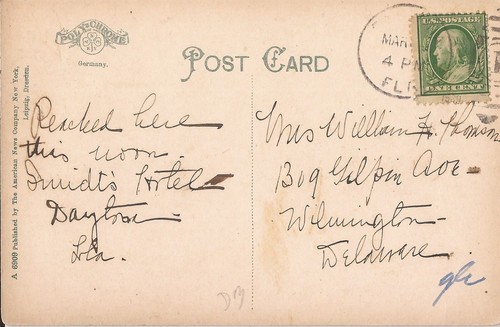 POLY-CHROME
Germany.
POST CARD
MAR
4 PM
FL
U.S. POSTAGE
ONE CENT
A 6909 Published by The American News Company New York,
Leipzig, Dresden.
Reached here
this noon.
Hotel
Daytona
Fla.
Mrs William H. Thomson
1309 Gilpin Ave
Wilmington
Delaware